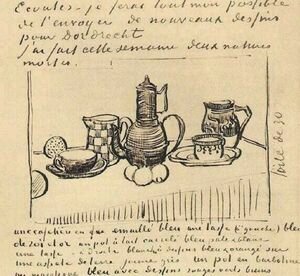 Ecoutes - je ferai tout mon possible
de t'envoyer de nouveaux dessins
pour Dordrecht
J'ai fait cette semaine deux natures
mortes.
toile de 30
une cafetière en fer emaillé bleu une tasse (à gauche) bleu
de roi et or un pot à lait carrelé bleu pale et blanc
une tasse - à droite blanche à dessins bleus & orangé sur
une assiette de terre jaune gris un pot en barbotine
ou majolique bleu avec dessins rouges verts bruns